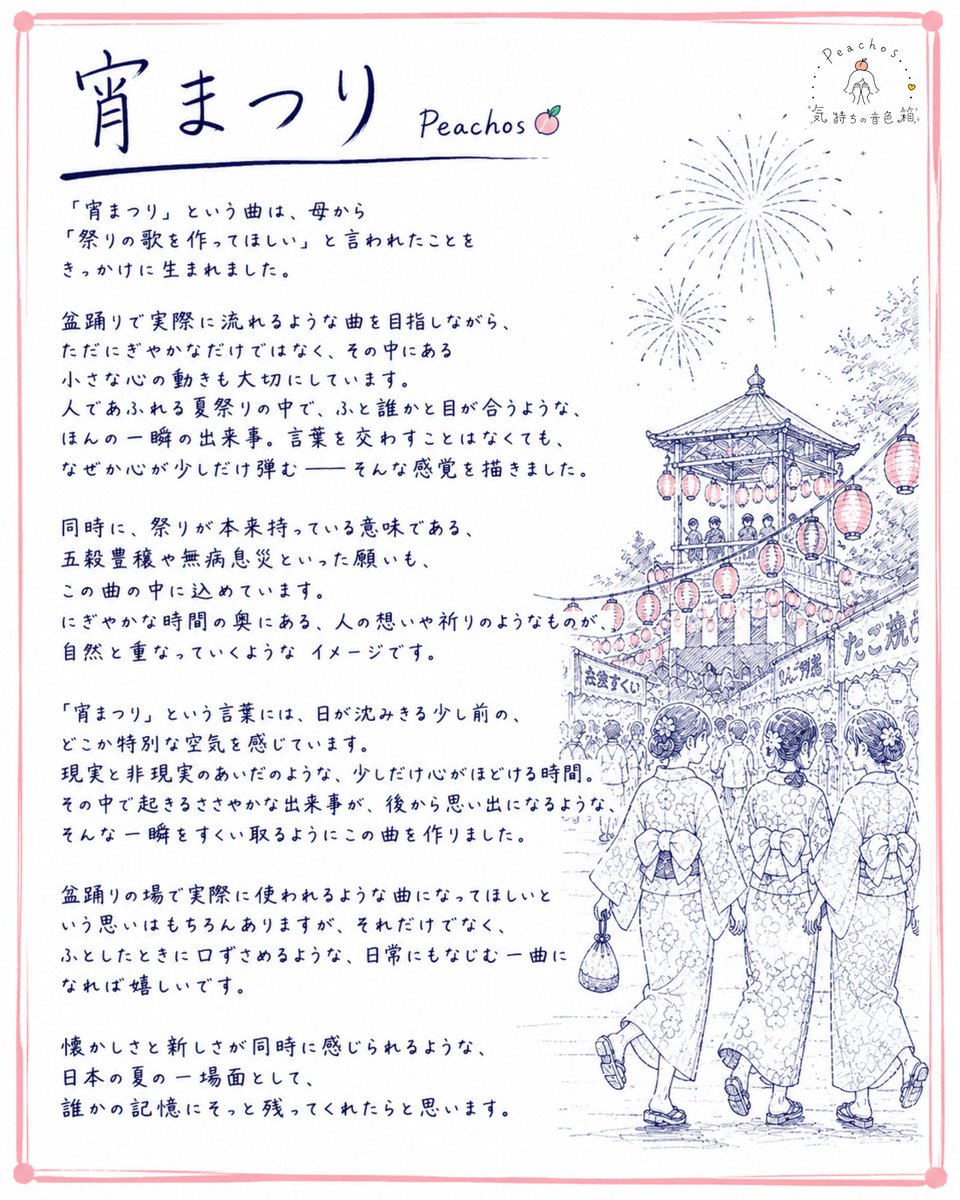 宵まつり Peachos
Peachos...
気持ちの音色箱
「宵まつり」という曲は、母から
「祭りの歌を作ってほしい」と言われたことを
きっかけに生まれました。
盆踊りで実際に流れるような曲を目指しながら、
ただにぎやかなだけではなく、その中にある
小さな心の動きも大切にしています。
人であふれる夏祭りの中で、ふと誰かと目が合うような、
ほんの一瞬の出来事。言葉を交わすことはなくても、
なぜか心が少しだけ弾む――そんな感覚を描きました。
同時に、祭りが本来持っている意味である、
五穀豊穣や無病息災といった願いも、
この曲の中に込めています。
にぎやかな時間の奥にある、人の想いや祈りのようなものが、
自然と重なっていくようなイメージです。
「宵まつり」という言葉には、日が沈みきる少し前の、
どこか特別な空気を感じています。
現実と非現実のあいだのような、少しだけ心がほどける時間。
その中で起きるささやかな出来事が、後から思い出になるような、
そんな一瞬をすくい取るようにこの曲を作りました。
盆踊りの場で実際に使われるような曲になってほしいと
いう思いはもちろんありますが、それだけでなく、
ふとしたときに口ずさめるような、日常にもなじむ一曲に
なれば嬉しいです。
懐かしさと新しさが同時に感じられるような、
日本の夏の一場面として、
誰かの記憶にそっと残ってくれたらと思います。
たこ焼き
すくい